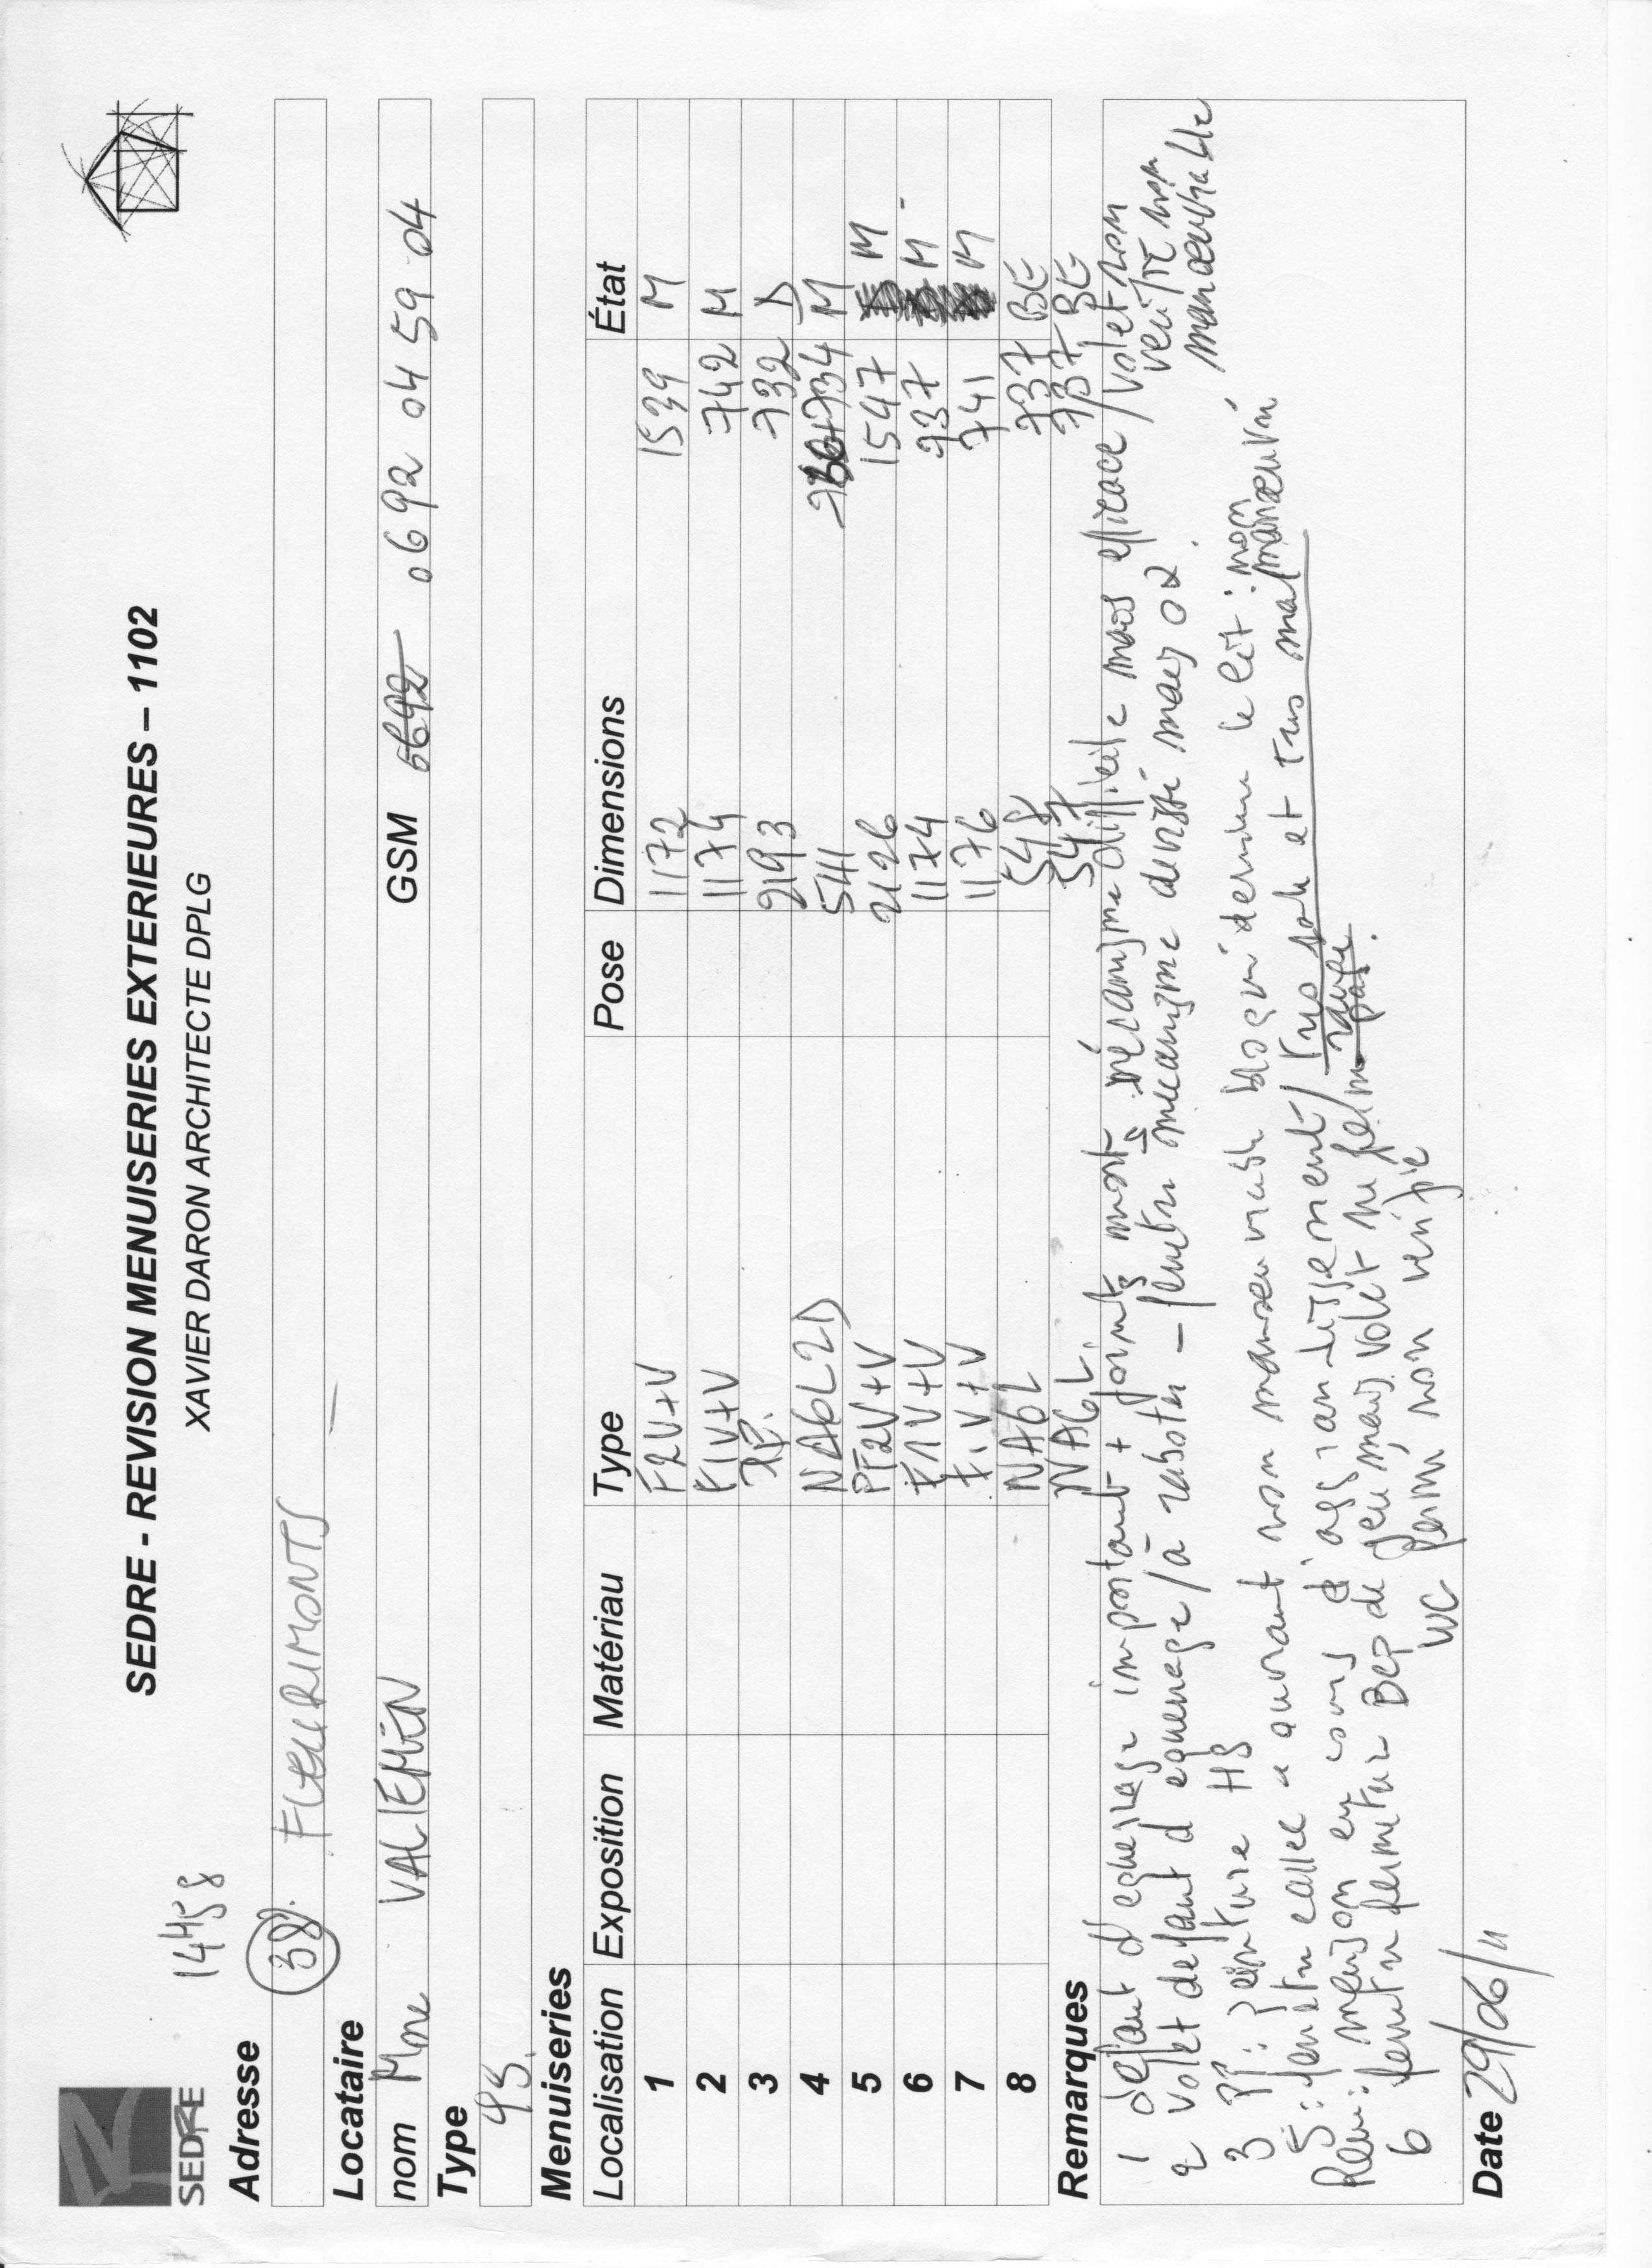 SEDRE - REVISION MENUISERIES EXTERIEURES – 1102
XAVIER DARON ARCHITECTE DPLG
SEDRE
14458
Adresse
38. FLEURIMONTS
Locataire
nom Mme VALIEMEN GSM 0692 0692 04 59 04
Type
Menuiseries
Localisation Exposition Matériau Type Pose Dimensions État
1 F2V+V 1172 1539 M
2 F1V+V 1174 742 M
3 2193 732 D
4 NA6L2D 541 734 M
5 PF2V+V 2126 1547 M
6 F1V+V 1174 937 M
7 F1V+V 1176 741 M
8 NA6L 548 737 BE
NA6L 547 737 BE
Remarques
1 défaut d'équerrage important + joints morts mécanisme difficile mais efficace / volet non
verifié non
manoeuvrable
2 volet défaut d'équerrage / à raboter – fenêtre mécanisme devissé mais ok.
3 PP: peinture HS
5: fenêtre calée ouvrant non manoeuvrable bloqué derriere le lit: non manoeuvré
Rem: maison en cours d'agrandissement / tres sale et tres mal
rangé
6 fenêtre fermeture Bcp de jeu mais volet ne ferme pas.
WC fermé non verifié
Date 29/06/11